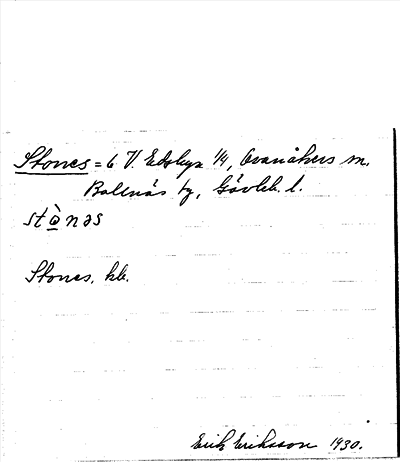 Stones = 6 V. Edsbyn 1/4, Ovanåkers sn.
Bollnäs tg, Gävleb. l.
stò̲nəs
Stones, kb.
Erik Eriksson 1930.